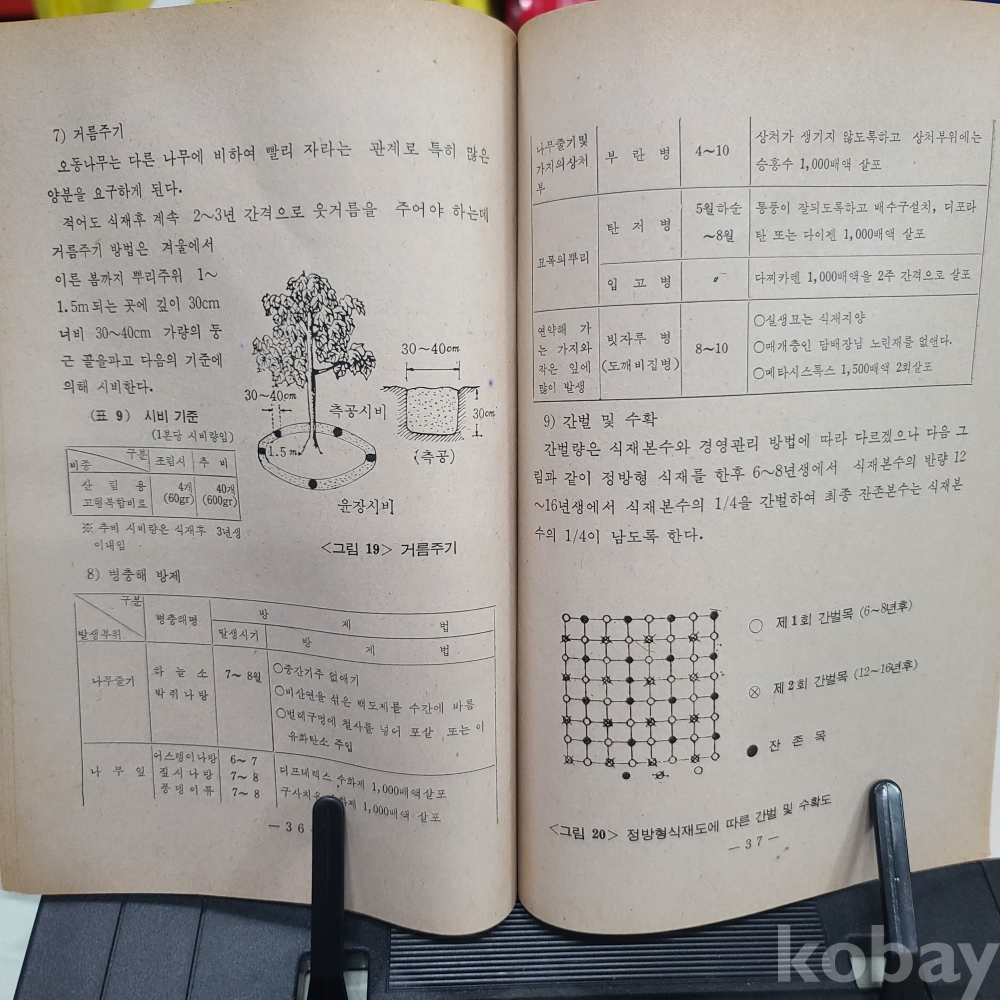 7) 거름주기
오동나무는 다른 나무에 비하여 빨리 자라는 관계로 특히 많은
양분을 요구하게 된다.
적어도 식재후 계속 2~3년 간격으로 웃거름을 주어야 하는데
거름주기 방법은 겨울에서
이른 봄까지 뿌리주위 1~
1.5m되는 곳에 깊이 30cm
너비 30~40cm 가량의 둥
근 골을파고 다음의 기준에
의해 시비한다.
30~40cm
30~40cm
측공시비
30cm
1.5m
(측공)
윤장시비
<그림 19> 거름주기
(표 9) 시비 기준
(1본당 시비량임)
구분
비종
조림시
추 비
산 림 용
고형복합비료
4개
(60gr)
40개
(600gr)
※ 추비 시비량은 식재후 3년생
이내임
8) 병충해 방제
구분
발생부위
병충해명
방 제 법
발생시기
방 제 법
나무줄기
하 늘 소
박쥐나방
7~ 8월
○중간기주 없애기
○비산연을 섞은 백도제를 수간에 바름
○벌레구멍에 철사를 넣어 포살 또는 이
유화탄소 주입
나 무 잎
어스렝이나방
짚시나방
풍뎅이류
6~ 7
7~ 8
7~ 8
디프테렉스 수화제 1,000배액살포
1,000배액 살포
─ 36
나무줄기및
가지의상처
부
부 란 병
4~10
상처가 생기지 않도록하고 상처부위에는
승홍수 1,000배액 살포
묘목의뿌리
탄 저 병
5월하순
~8월
통풍이 잘되도록하고 배수구설치, 디포라
탄 또는 다이젠 1,000배액 살포
입 고 병
〃
다찌카렌 1,000배액을 2주 간격으로 살포
연약해 가
는 가지와
작은 잎에
많이 발생
빗자루 병
(도깨비집병)
8~10
○실생묘는 식재지양
○매개충인 담배장님 노린재를 없앤다.
○메타시스톡스 1,500배액 2회살포
9) 간벌 및 수확
간벌량은 식재본수와 경영관리 방법에 따라 다르겠으나 다음 그
림과 같이 정방형 식재를 한후 6~8년생에서 식재본수의 반량 12
~16년생에서 식재본수의 1/4을 간벌하여 최종 잔존본수는 식재본
수의 1/4이 남도록 한다.
제1회 간벌목 (6~8년후)
제2회 간벌목 (12~16년후)
잔 존 목
<그림 20> 정방형식재도에 따른 간벌 및 수확도
─ 37 ─
kobay